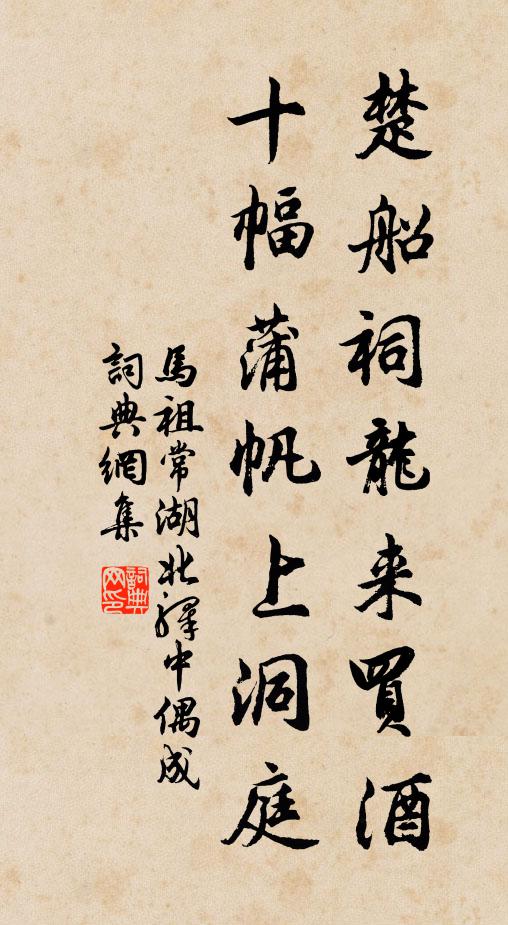 楚船祠龍来買酒
十幅蒲帆上洞庭
馬祖常湖北驛中偶成
詞典網集
詞典网印